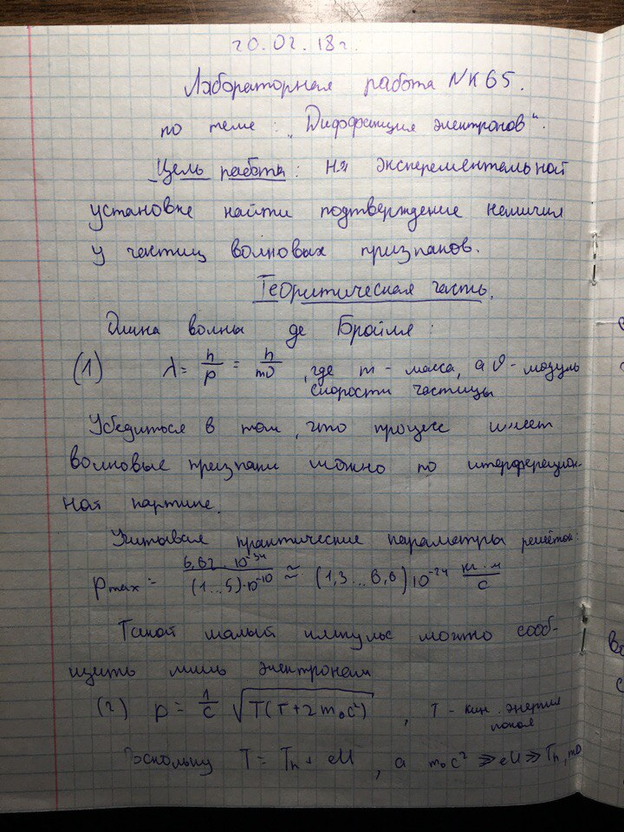 20.02.18г.
Лабораторная работа NК65.
по теме: „Дифракция электронов".
Цель работы: на эксперементальной
установке найти подтверждение наличия
у частиц волновых признаков.
Теоритическая часть.
Длина волны де Бройля:
(1) λ = h/p = h/mυ, где m - масса, а υ - модуль
скорости частицы
Убедиться в том, что процесс имеет
волновые признаки можно по интерференцион-
ной картине.
Учитывая практические параметры решёток:
pmax = 6,62 · 10^-34 / (1...5)·10^-10 ≈ (1,3...6,6) 10^-24 кг·м/с
Такой малый импульс можно сооб-
щить лишь электронам
(2) p = 1/c √T(T+2m₀c²), T - кин. энергия
покоя
Поскольку T = Tn + eU, а m₀c² ≫ eU ≫ Tn, то